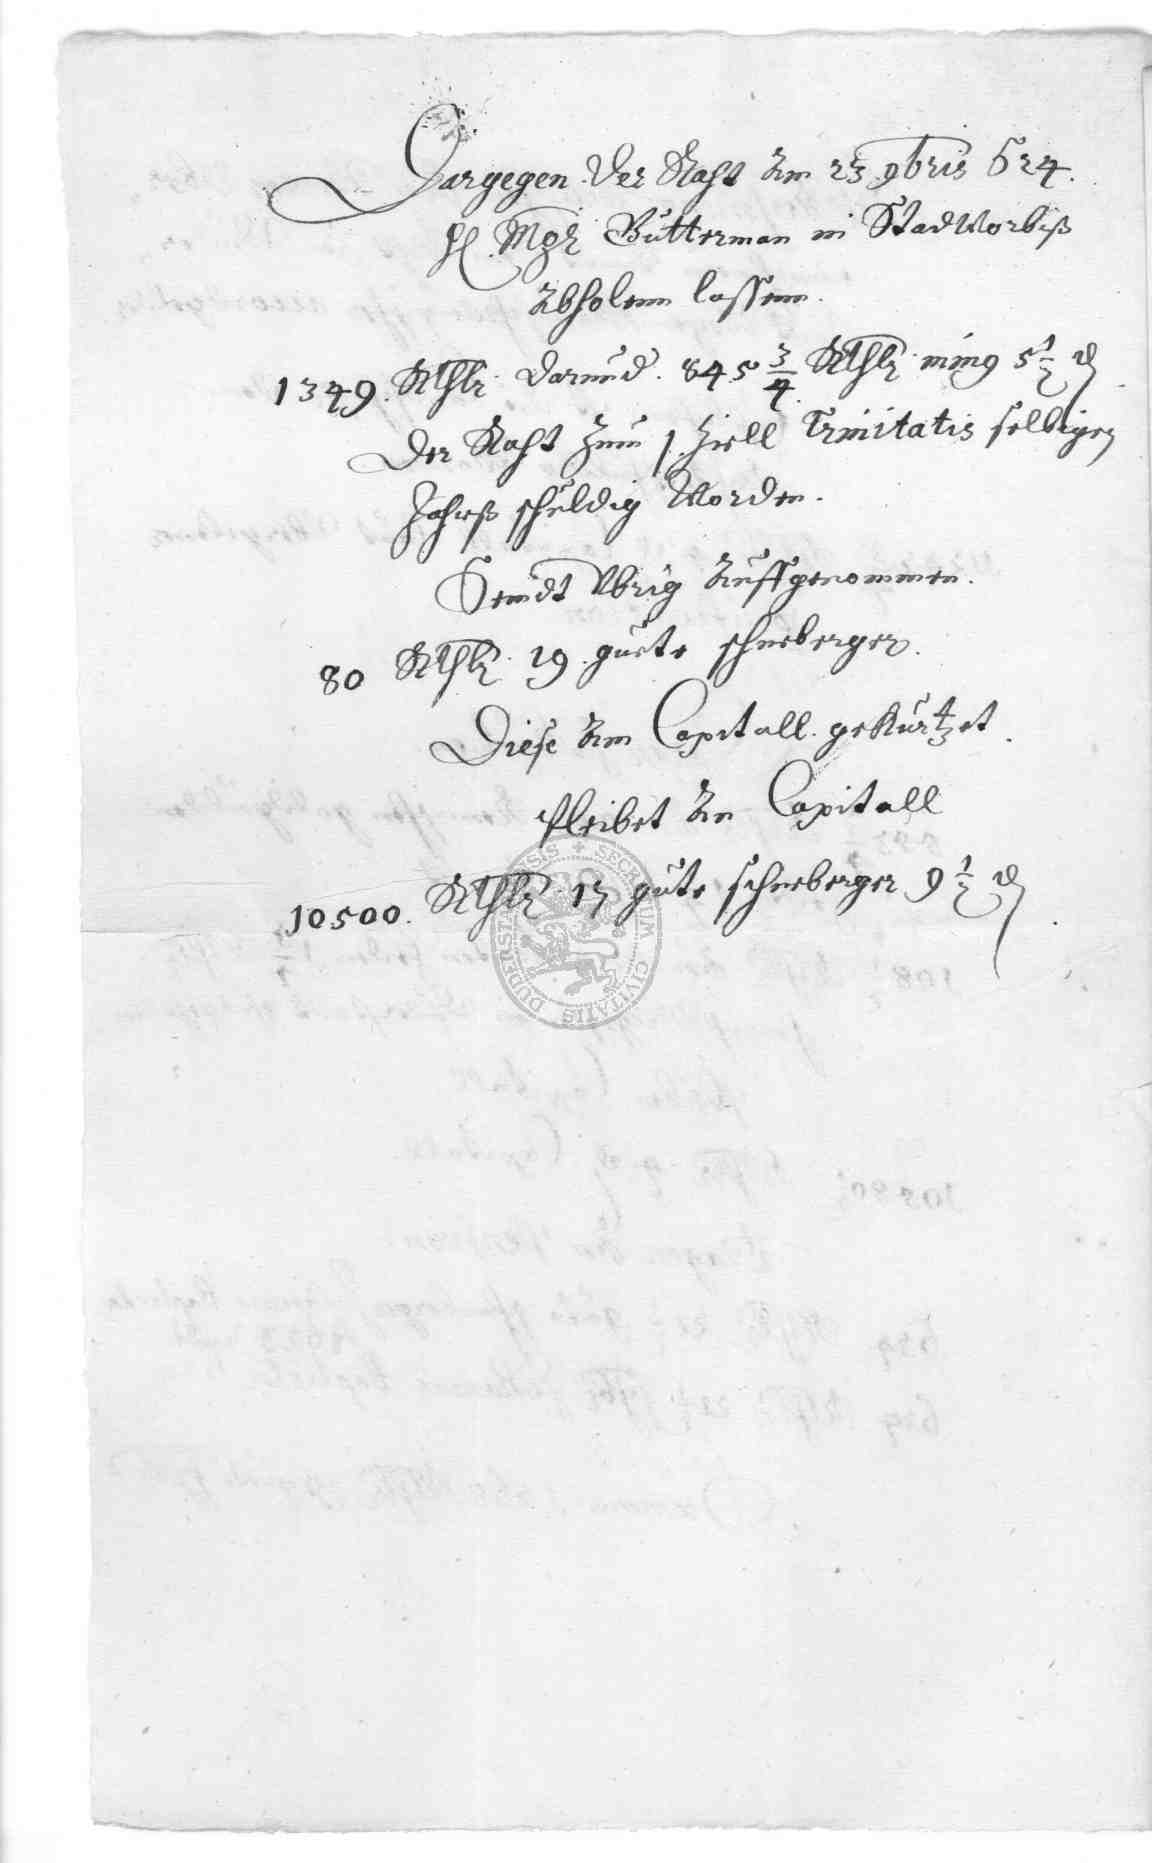 Dargegen der Raht Am 23 9bris 624.
H. Mgr Butterman in StadWorbiß
Abholenn lassenn.
1349. Rthlr darundr. 845 3/4 Rthlr ming 5 1/2 ₰
Der Raht zum 1. Ziell Trinitatis selbiger
Jahrß schuldig Worden.
Seindt Vbrig Auffgenommen.
80 Rthlr 19 guete schneberger.
Diese Am Capitall gekürtzet.
Pleibet An Capitall
10500. Rthlr 17 gute schneberger 9 1/2 ₰
SECRETUM CIVITATIS DUDERSTADENSIS